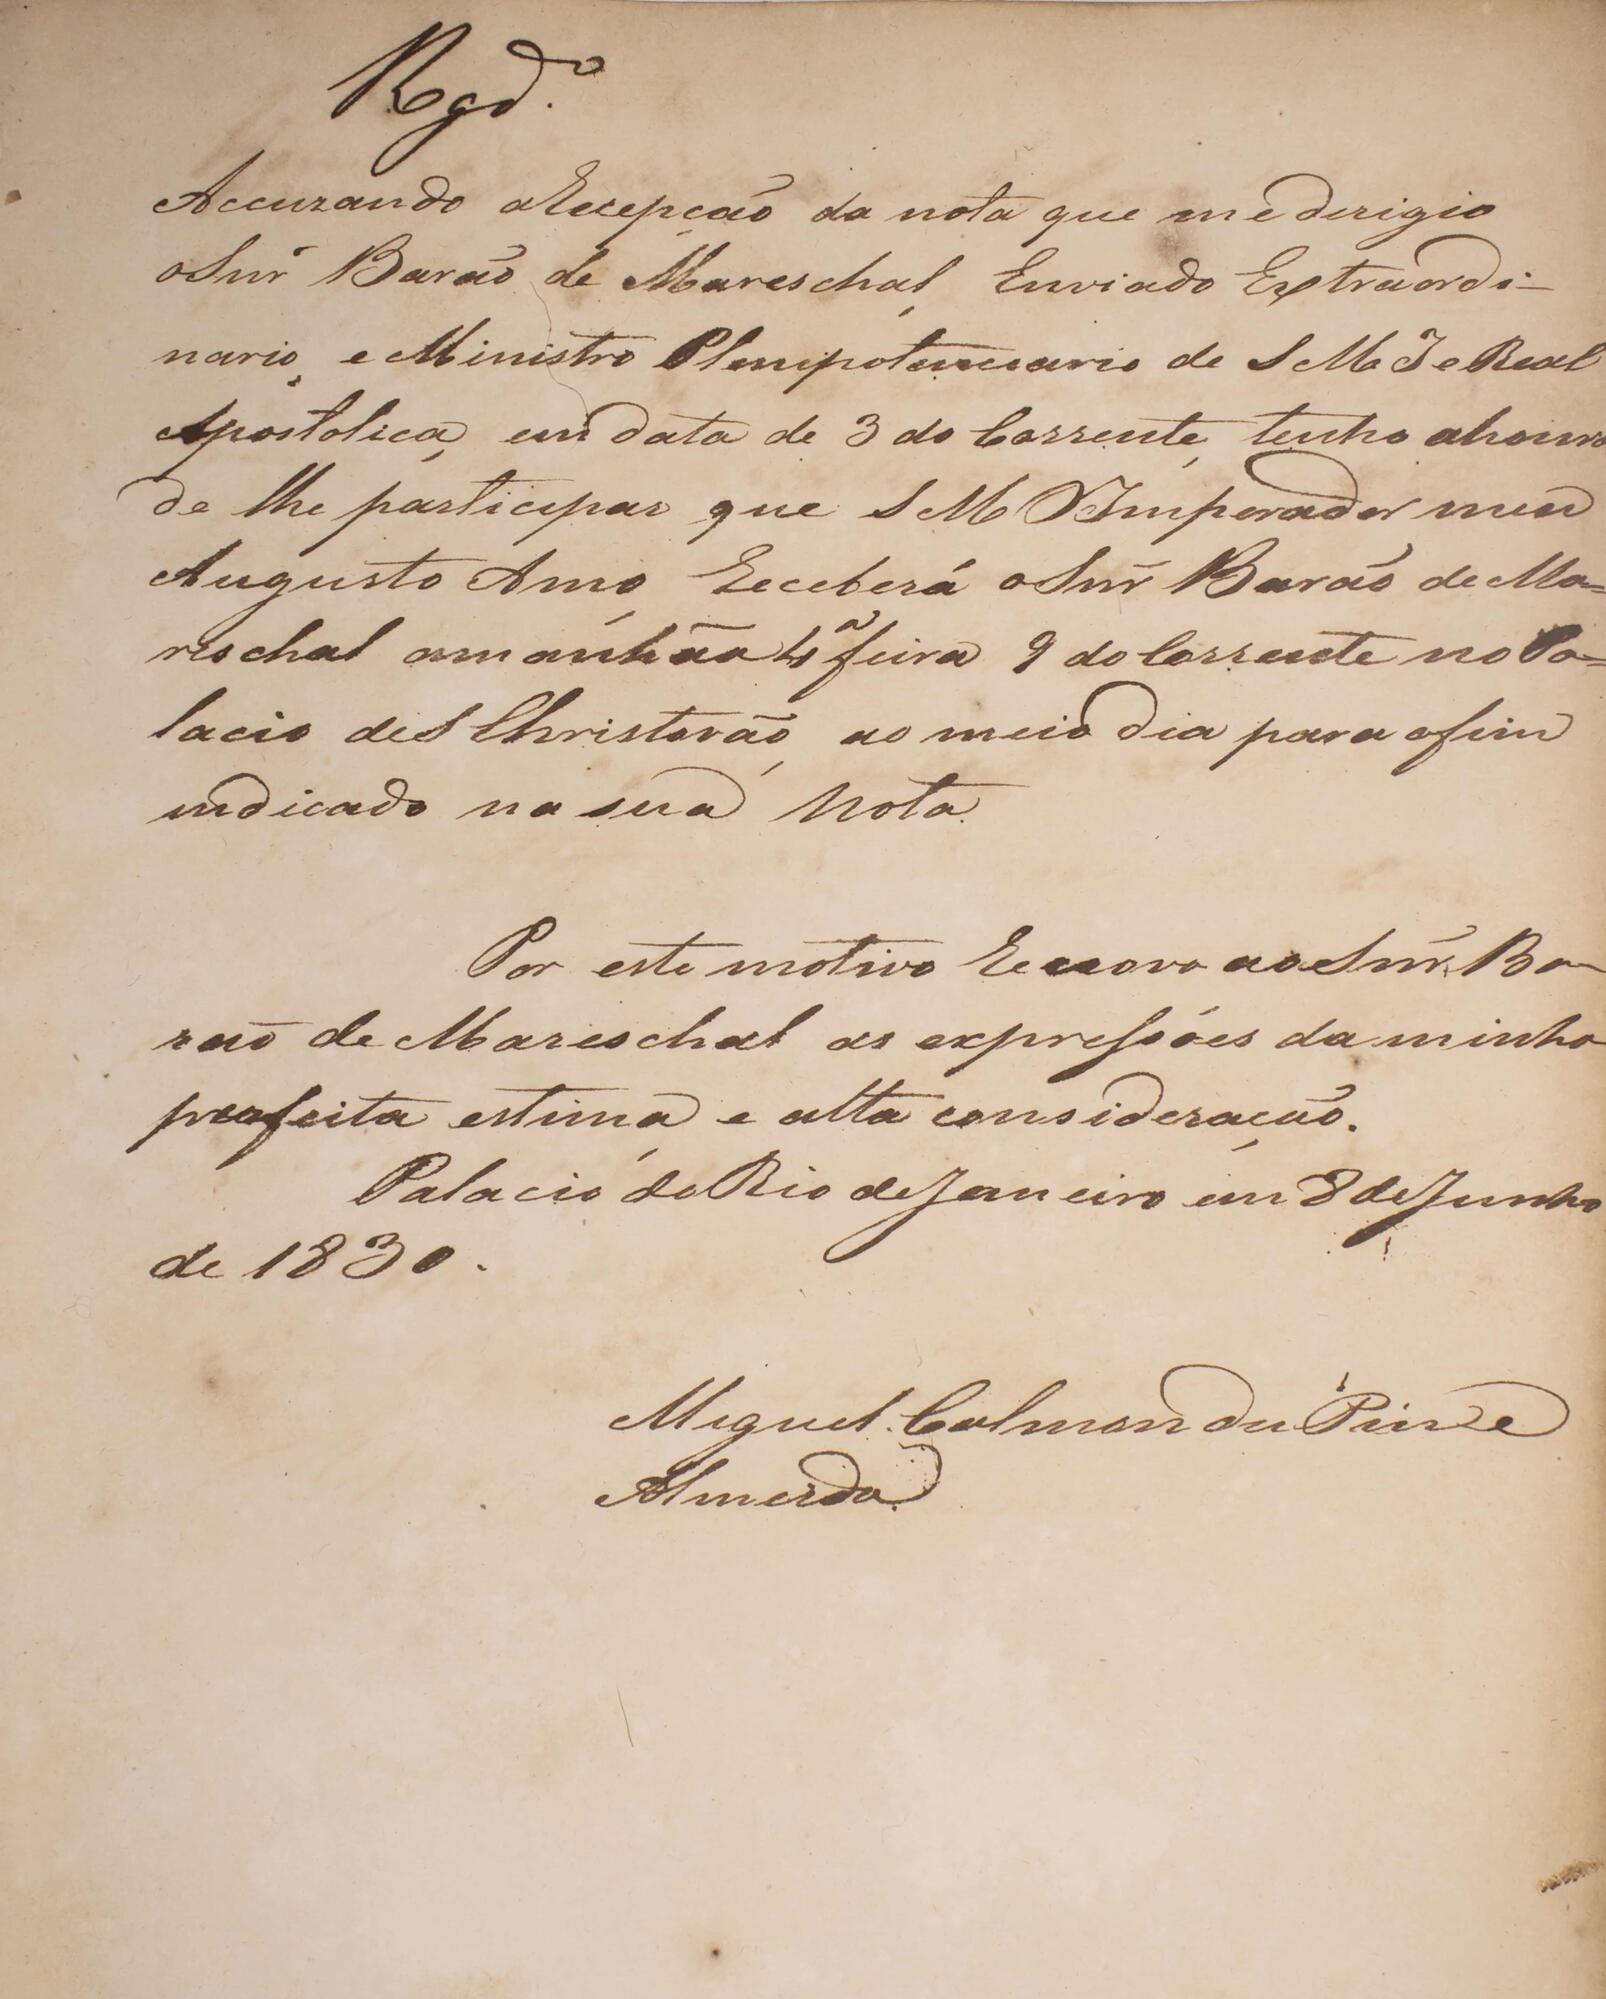 Rgd.º
Accuzando a Recepção da nota que me derigio
o Snr̃ Barão de Mareschal, Enviado Extraordi-
nario, e Ministro Plenipotenciario de S M I e Real
Apostolica, em data de 3 do Corrente, tenho a honra
de lhe participar que S M O Imperador meu
Augusto Amo, Receberá o Snr̃ Barão de Ma=
reschal amanhãa 4ª feira 9 do Corrente no Pa=
lacio de S Christovão, ao meio dia para o fim
indicado na sua Nota.
Por este motivo Renovo ao Snr̃. Ba-
rão de Mareschal as expressões da minha
perfeita estima, e alta consideração.
Palacio do Rio de Janeiro em 8 de Junho
de 1830.
Miguel Calmon du Pin e
Almeida